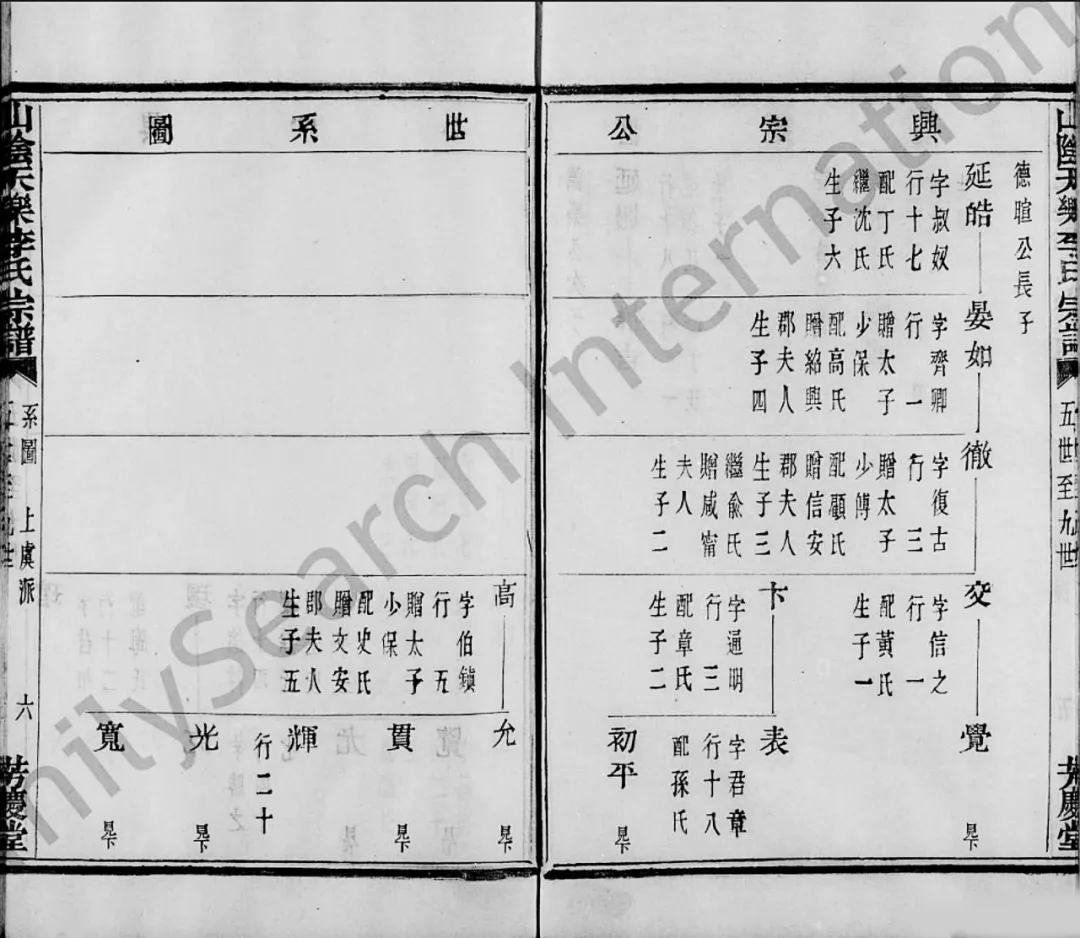 山陰天樂李氏宗譜
五世至九世
芳慶堂
興宗公
德暄公長子
延皓
字叔奴
行十七
配丁氏
繼沈氏
生子六
晏如
字齊卿
行一
贈太子
少保
配高氏
贈紹興
郡夫人
生子四
徹
字復古
行三
贈太子
少傅
配顧氏
贈信安
郡夫人
生子三
繼俞氏
贈咸甯
夫人
生子二
交
字信之
行一
配黃氏
生子一
卞
字通明
行三
配章氏
生子二
覺
見下
表
字君章
行十八
配孫氏
初平
見下
世系圖
高
字伯鎮
行五
贈太子
少保
配史氏
贈文安
郡夫人
生子五
允
見下
貫
見下
輝
行二十
光
見下
寬
見下
山陰天樂李氏宗譜
系圖 上虞派
五世至九世
六
芳慶堂
FamilySearch International